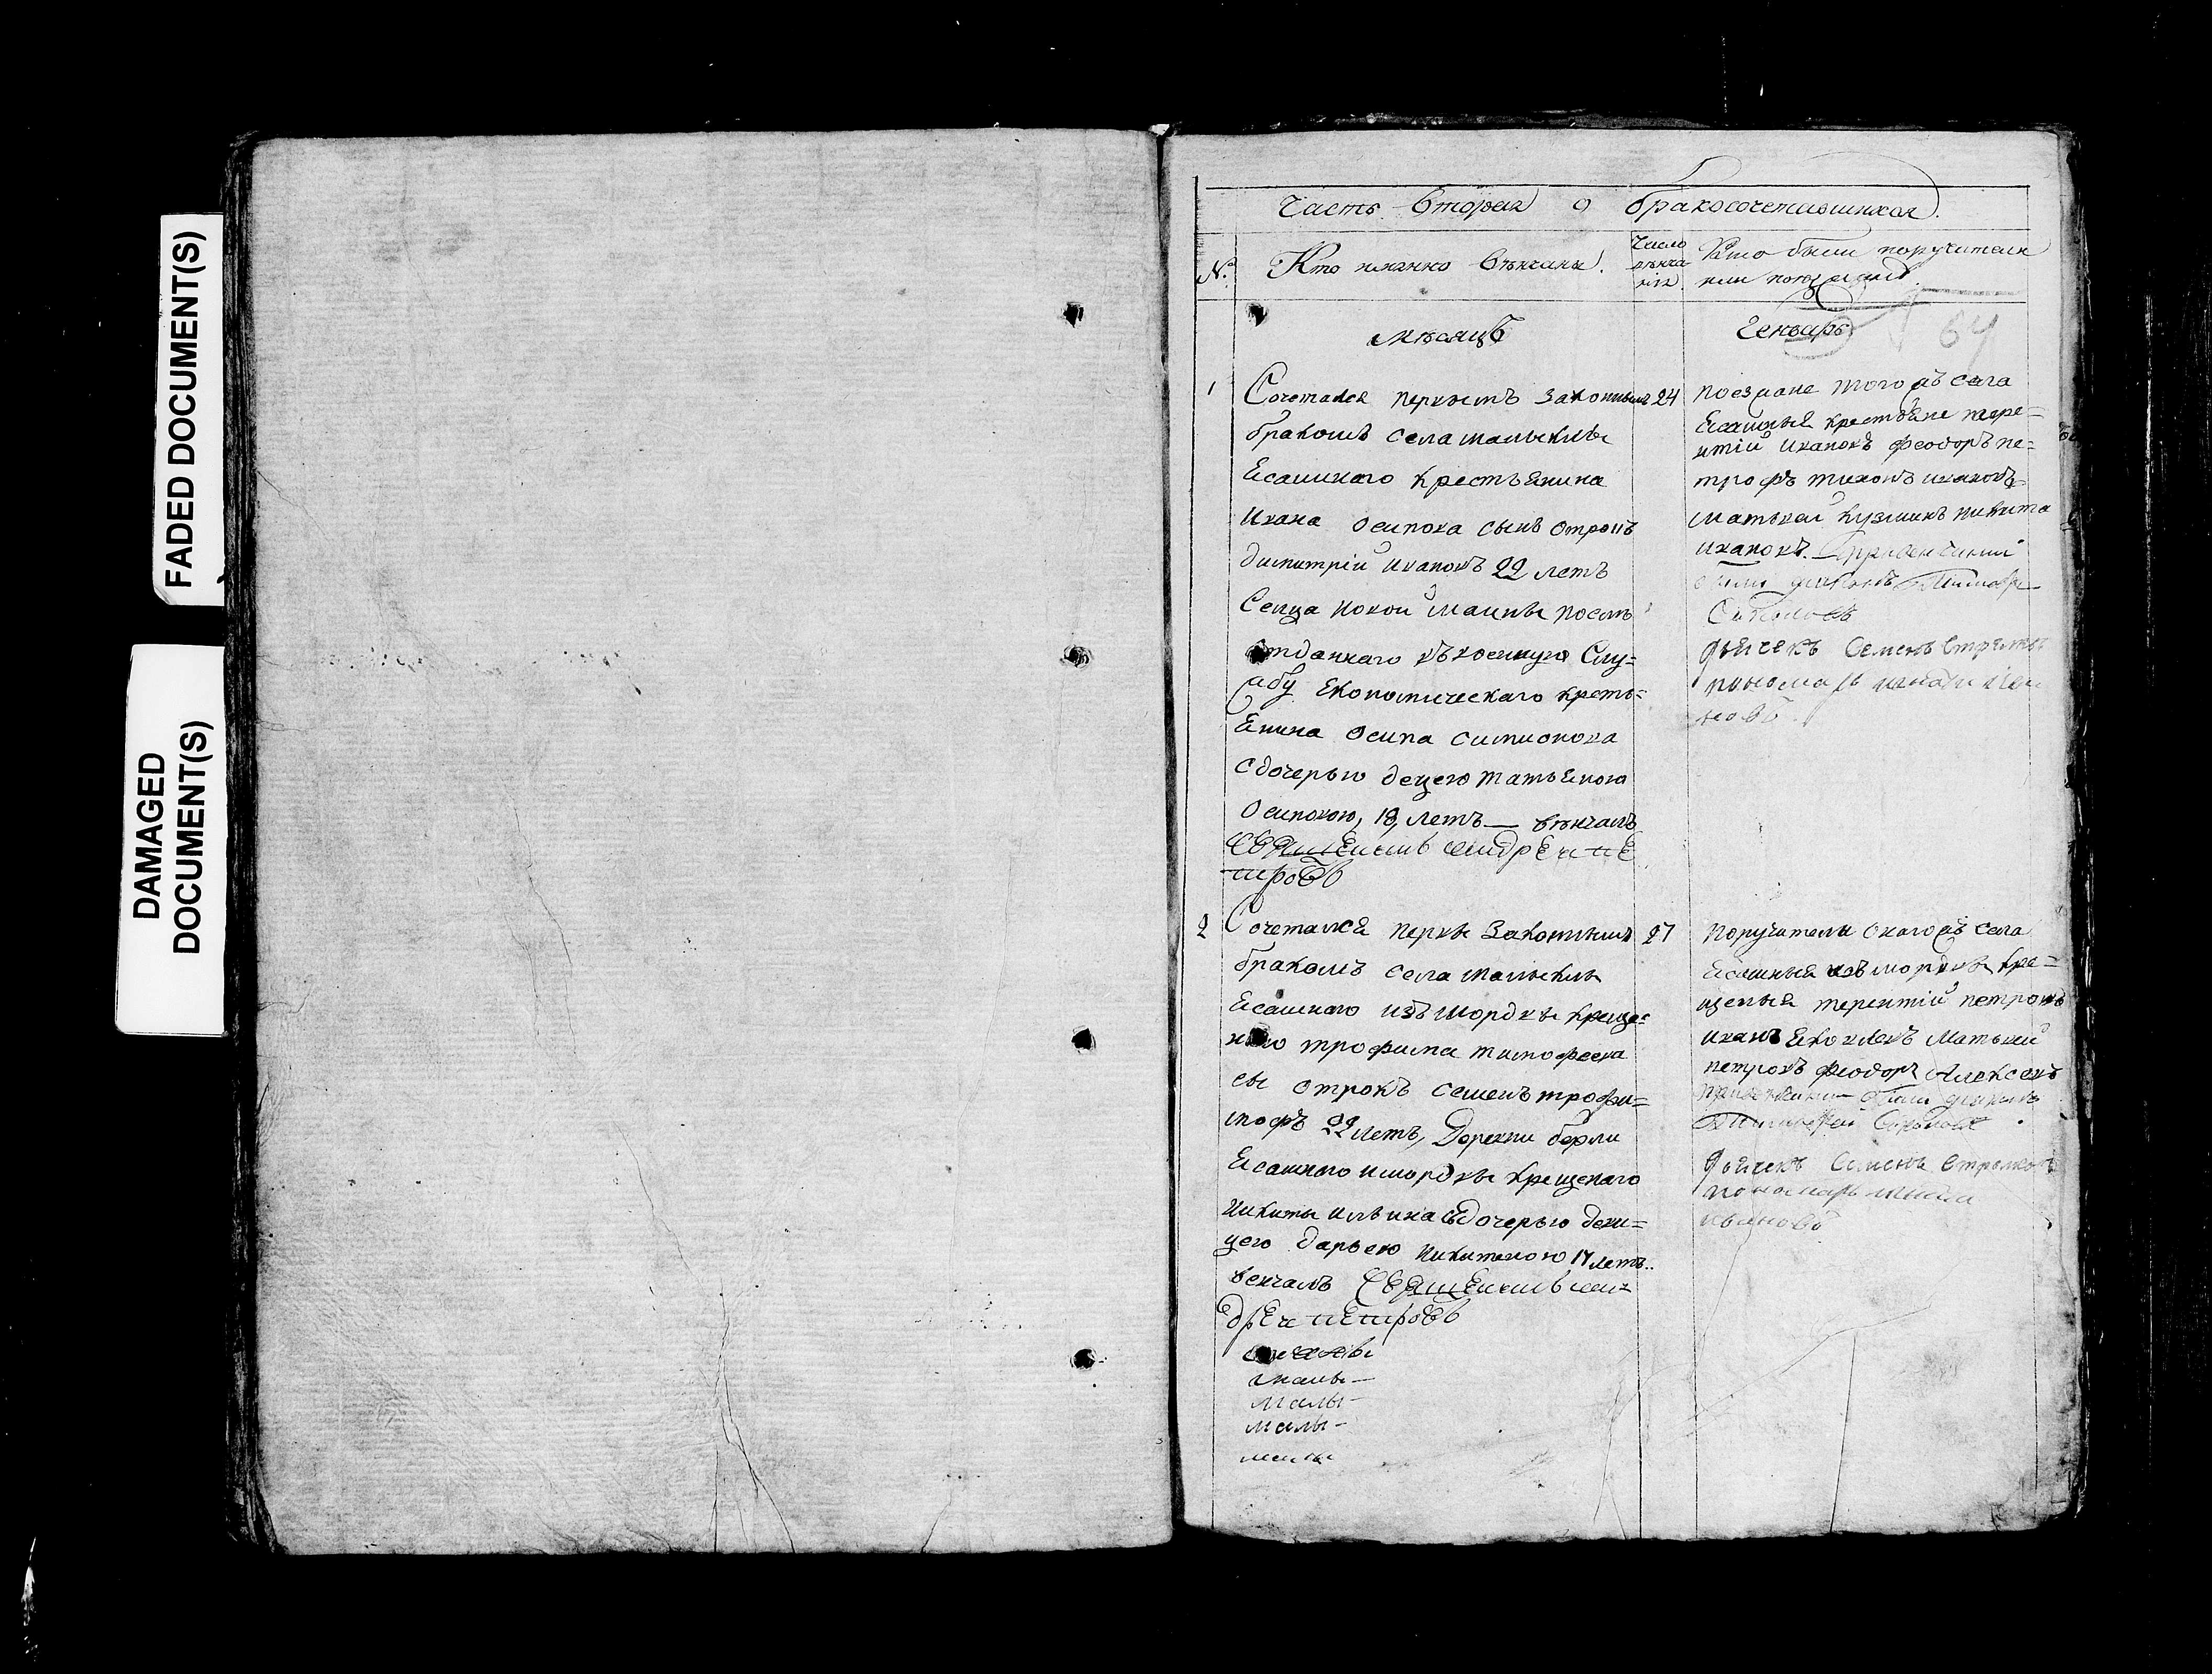 FADED DOCUMENT(S)
DAMAGED
DOCUMENT(S)
Часть Вторая о бракосочетавшихся.
№. Кто имянно Вѣнчаны.
Число
вѣнча
нія
Кто были поручители
или поезжаня.
мѣсяцъ Генварь
64
1
Сочетался первымъ законнымъ
бракомъ села малыклы
Ясашнаго крестьянина
Ивана осипова сынъ отрокъ
димитрій ивановъ 22 летъ
Сельца новой малыклы послѣ
отданнаго въ военную Слу=
жбу Економическаго кресть=
янина осипа симионова
с дочерью девецею татьяною
осиповою, 18, летъ — вѣнчалъ
свЯщЕнникъ андрЕи пЕ
тровъ
24
поезжане того жъ села
Ясашныя крестьяне тере=
нтіи ивановъ феодоръ пе=
трофъ тихонъ ивановъ
матьвей кузминъ никита
ивановъ. При венчании
были диаконъ Тимофе
Соколовъ
дьячекъ Семенъ
пономарь
новъ
2
Сочетался первы Законнымъ
бракомъ села малыклы
Ясашнаго изъ мордвы креще=
наго трофима тимофеева
сы отрокъ семенъ трофи=
мофъ 22 летъ, Деревни берли
Ясашнаго измордвы крещенаго
Никиты ильина съдочерью деви=
цею дарьею никитиною 17 летъ..
венчалъ свЯщЕнникъ ан=
дрЕи пЕтровъ
27
Поручители оногожъ села
Ясашныя изъ мордвы кре=
щеныя терентій петровъ
иванъ Яковлевъ Матьвей
петровъ феодоръ Алексеевъ
при венчании были диаконъ
Тимофей Соколовъ
дьячекъ Семенъ
пономарь
ивановъ
малы—
малы—
малы—